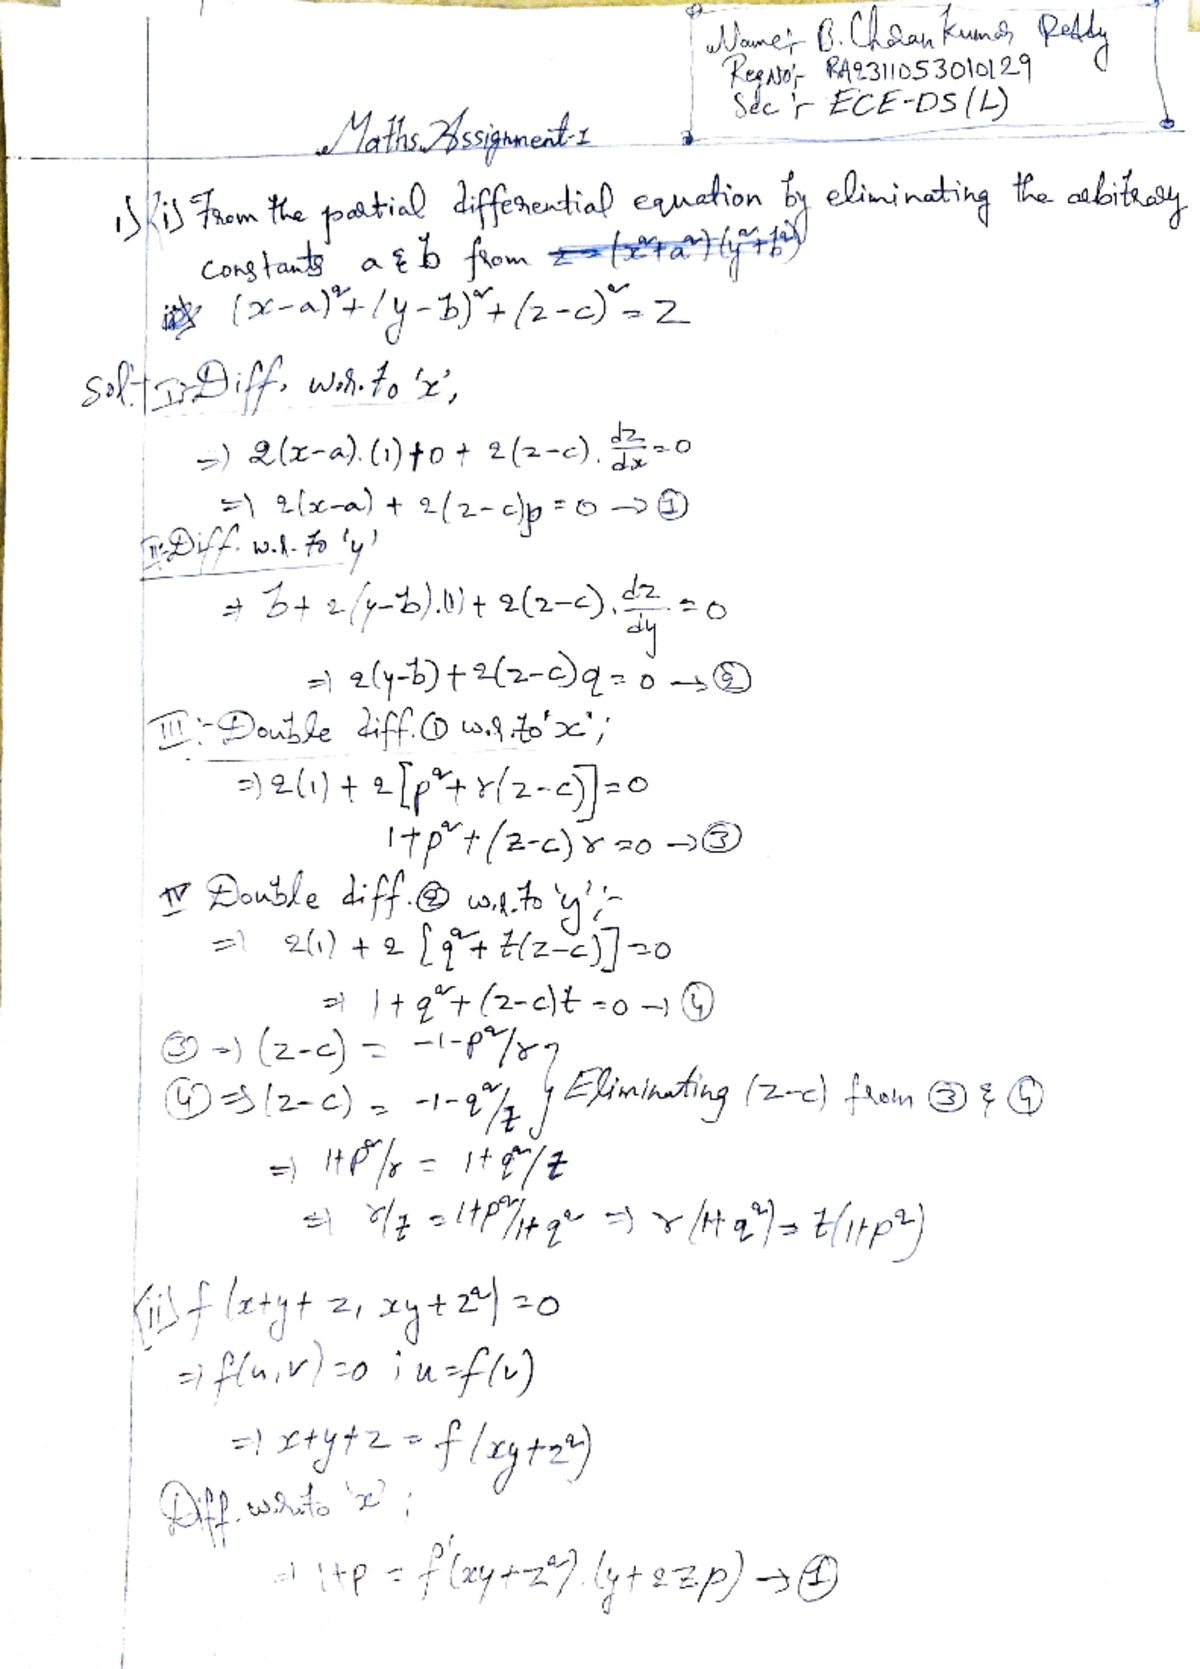 Name:- B. Charan Kumar Reddy
Reg No:- RA2311053010129
Sec :- ECE-DS(L)
Maths Assignment-1
1) (i) From the partial differential equation by eliminating the arbitrary
constants a & b from z = (x²+a²)(y²+b²)
(x-a)²+(y-b)²+(z-c)² = 2
Sol:- I:- Diff. w.r.to 'x',
=) 2(x-a).(1)+0+ 2(z-c). dz/dx = 0
=) 2(x-a) + 2(z-c)p = 0 → ①
II:- Diff. w.r.to 'y'
⇒ b+ 2(y-b).(1)+ 2(z-c). dz/dy = 0
=) 2(y-b)+2(z-c)q = 0 → ②
III:- Double diff. ① w.r.to 'x';
=) 2(1) + 2[p²+r(z-c)] = 0
1+p²+(z-c)r = 0 → ③
IV Double diff. ② w.r.to 'y';-
=) 2(1) + 2 [q²+ t(z-c)] = 0
=) 1+q²+(z-c)t = 0 → ④
③ =) (z-c) = -1-p²/r
④ => (z-c) = -1-q²/t } Eliminating (z-c) from ③ & ④
=) 1+p²/r = 1+q²/t
=) r/t = 1+p²/1+q² => r(1+q²) = t(1+p²)
(ii) f(x+y+z, xy+z²) = 0
=) f(u,v) = 0 ; u=f(v)
=) x+y+z = f(xy+z²)
Diff. w.r.to 'x' ;
=) 1+p = f'(xy+z²).(y+2zp) → ①